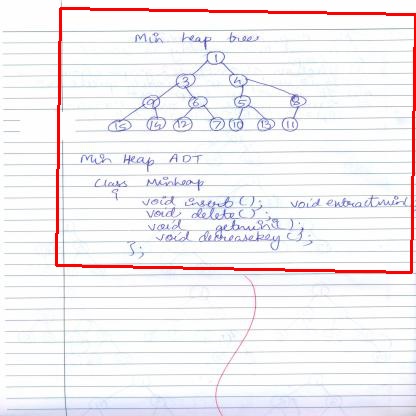 Min heap trees
1
3 4
9 6 5 8
15 14 12 7 10 13 11
Min Heap ADT
Class Minheap
{
void insert(); void extractmin(
void delete();
void getmin();
void decreasekey();
};